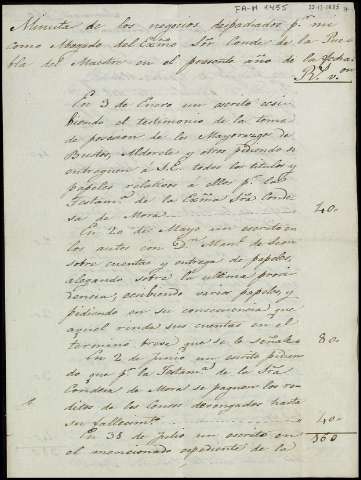 FA-M 1455
Minuta de los negocios despachados pr. mi
como Abogado del Exmo Sor Conde de la Pue
bla del Maestre en el presente año de la fecha
Rs. von
En 3 de Enero un escrito exi
biendo el testimonio de la toma
de posesion de los Mayorazgos de
Bustos, Alderete y otros pidiendo se
entreguen á S.E. todos los titulos y
papeles relativos á ellos pr. la
Testama. de la Exma Sra Conde
sa de Mora 40.
En 20 de Mayo un escrito en
los autos con Dn. Manl. de
sobre cuentas y entrega de papeles,
alegando sobre la ultima provi
dencia; exibiendo varios papeles, y
pidiendo en su consecuencia que
aquel rinda sus cuentas en el
termino breve que se le señale 80.
En 2 de junio un escrito pidien
do que pr. la Testama. de la Sra.
Condesa de Mora se paguen los re
ditos de los censos devengados hasta
su fallecimto. 40.
En 31 de julio un escrito en 160
el mencionado espediente de la